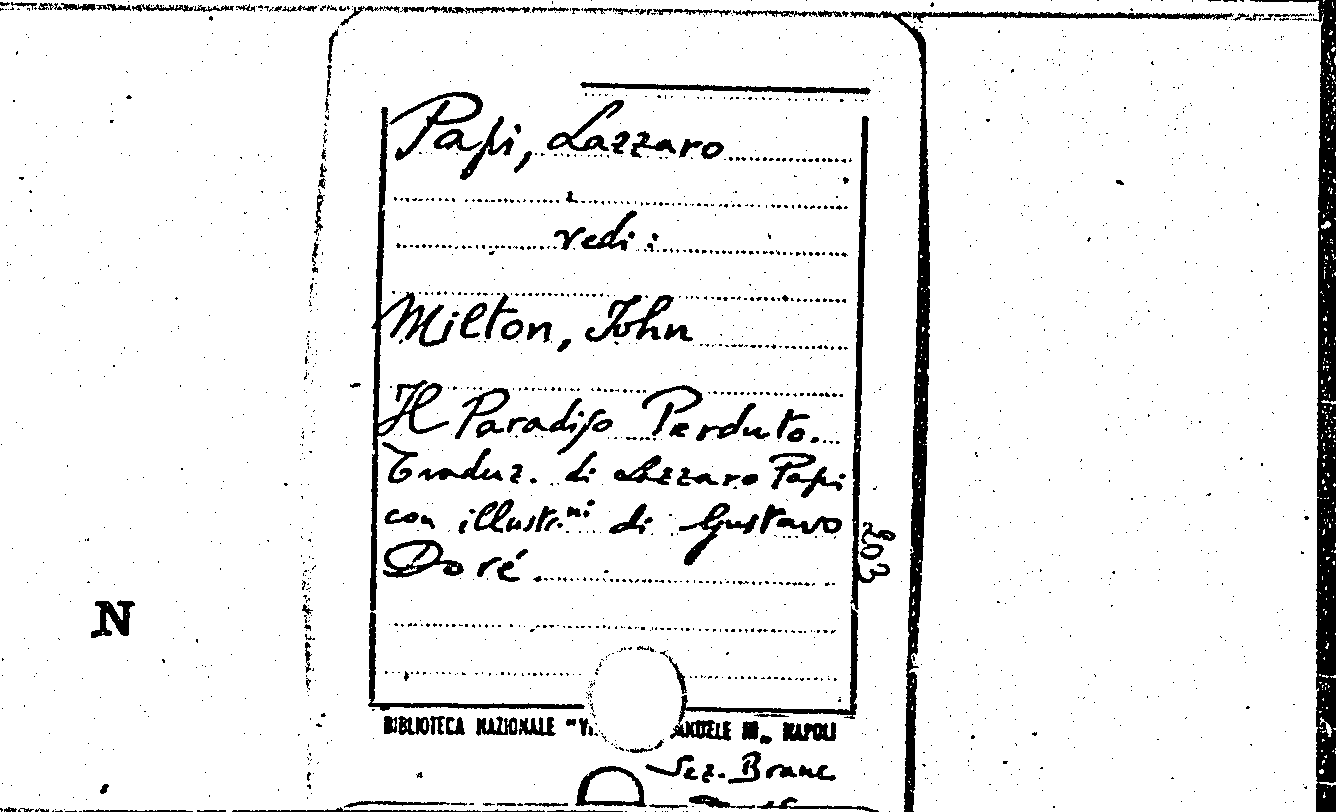 Papi, Lazzaro
vedi:
Milton, John
Il Paradiso Perduto.
Traduz. di Lazzaro Papi
con illustr.ni di Gustavo
Doré
203
N
BIBLIOTECA NAZIONALE "V ANUELE III„ NAPOLI
Sez. Branc.